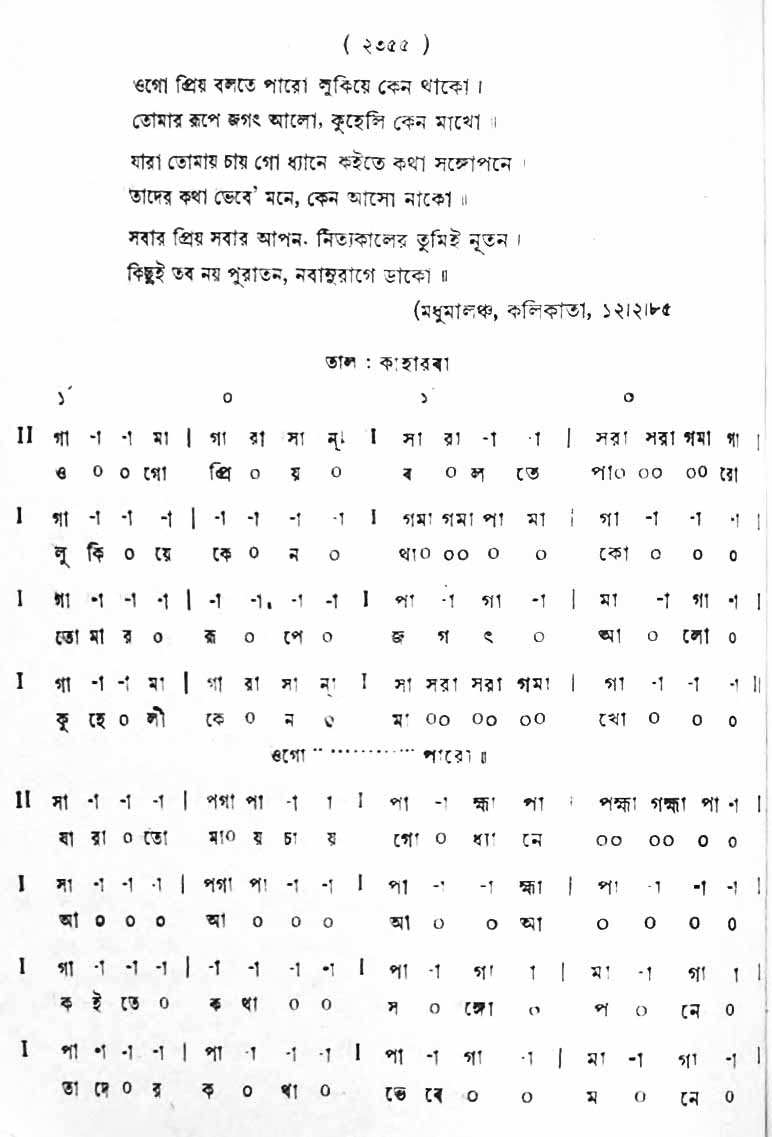 ( ২৩৫৫ )
ওগো প্রিয় বলতে পারো লুকিয়ে কেন থাকো ।
তোমার রূপে জগৎ আলো, কুহেলি কেন মাখো ॥
যারা তোমায় চায় গো ধ্যানে কইতে কথা সঙ্গোপনে ।
তাদের কথা ভেবে' মনে, কেন আসো নাকো ॥
সবার প্রিয় সবার আপন. নিত্যকালের তুমিই নূতন ।
কিছুই তব নয় পুরাতন, নবানুরাগে ডাকো ॥
(মধুমালঞ্চ, কলিকাতা, ১২।২।৮৫
তাল : কাহারবা
১´ ০ ১´ ০
II গা -া -া মা | গা রা সা ন্া I সা রা -া -া | সরা সরা গমা গা |
ও ০ ০ গো প্রি ০ য় ০ ব ০ ল তে পা০ ০০ ০০ রো
I গা -া -া -া | -া -া -া -া I গমা গমা পা মা | গা -া -া -া |
লু কি ০ য়ে কে ০ ন ০ থা০ ০০ ০ ০ কো ০ ০ ০
I গা -া -া -া | -া -া. -া -া I পা -া গা -া | মা -া গা -া |
তো মা র ০ রূ ০ পে ০ জ গ ৎ ০ আ ০ লো ০
I গা -া -া মা | গা রা সা ন্া I সা সরা সরা গমা | গা -া -া -া ||
কু হে ০ লী কে ০ ন ০ মা ০০ ০০ ০০ খো ০ ০ ০
ওগো ·············· পারো ॥
II সা -া -া -া | পগা পা -া া I পা -া হ্মা পা | পহ্মা গহ্মা পা -া |
যা রা ০ তো মা০ য় চা য় গো ০ ধ্যা নে ০০ ০০ ০ ০
I সা -া -া -া | পগা পা -া -া I পা -া -া হ্মা | পা -া -া -া |
আ ০ ০ ০ আ ০ ০ ০ আ ০ ০ আ ০ ০ ০ ০
I গা -া -া -া | -া -া -া -া I পা -া গা া | মা -া গা া |
ক ই তে ০ ক থা ০ ০ স ০ ঙ্গো ০ প ০ নে ০
I পা -া -া -া | পা -া -া -া I পা -া গা -া | মা -া গা -া |
তা দে ০ র ক ০ থা ০ ভে বে ০ ০ ম ০ নে ০